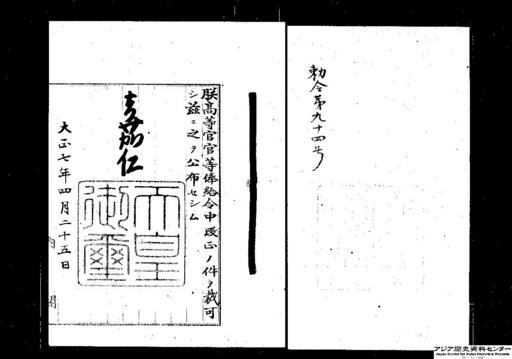 勅令第九十四号
朕高等官官等俸給令中改正ノ件ヲ裁可
シ茲ニ之ヲ公布セシム
嘉仁
天皇御璽
大正七年四月二十五日
内閣
アジア歴史資料センター
Japan Center for Asian Historical Records